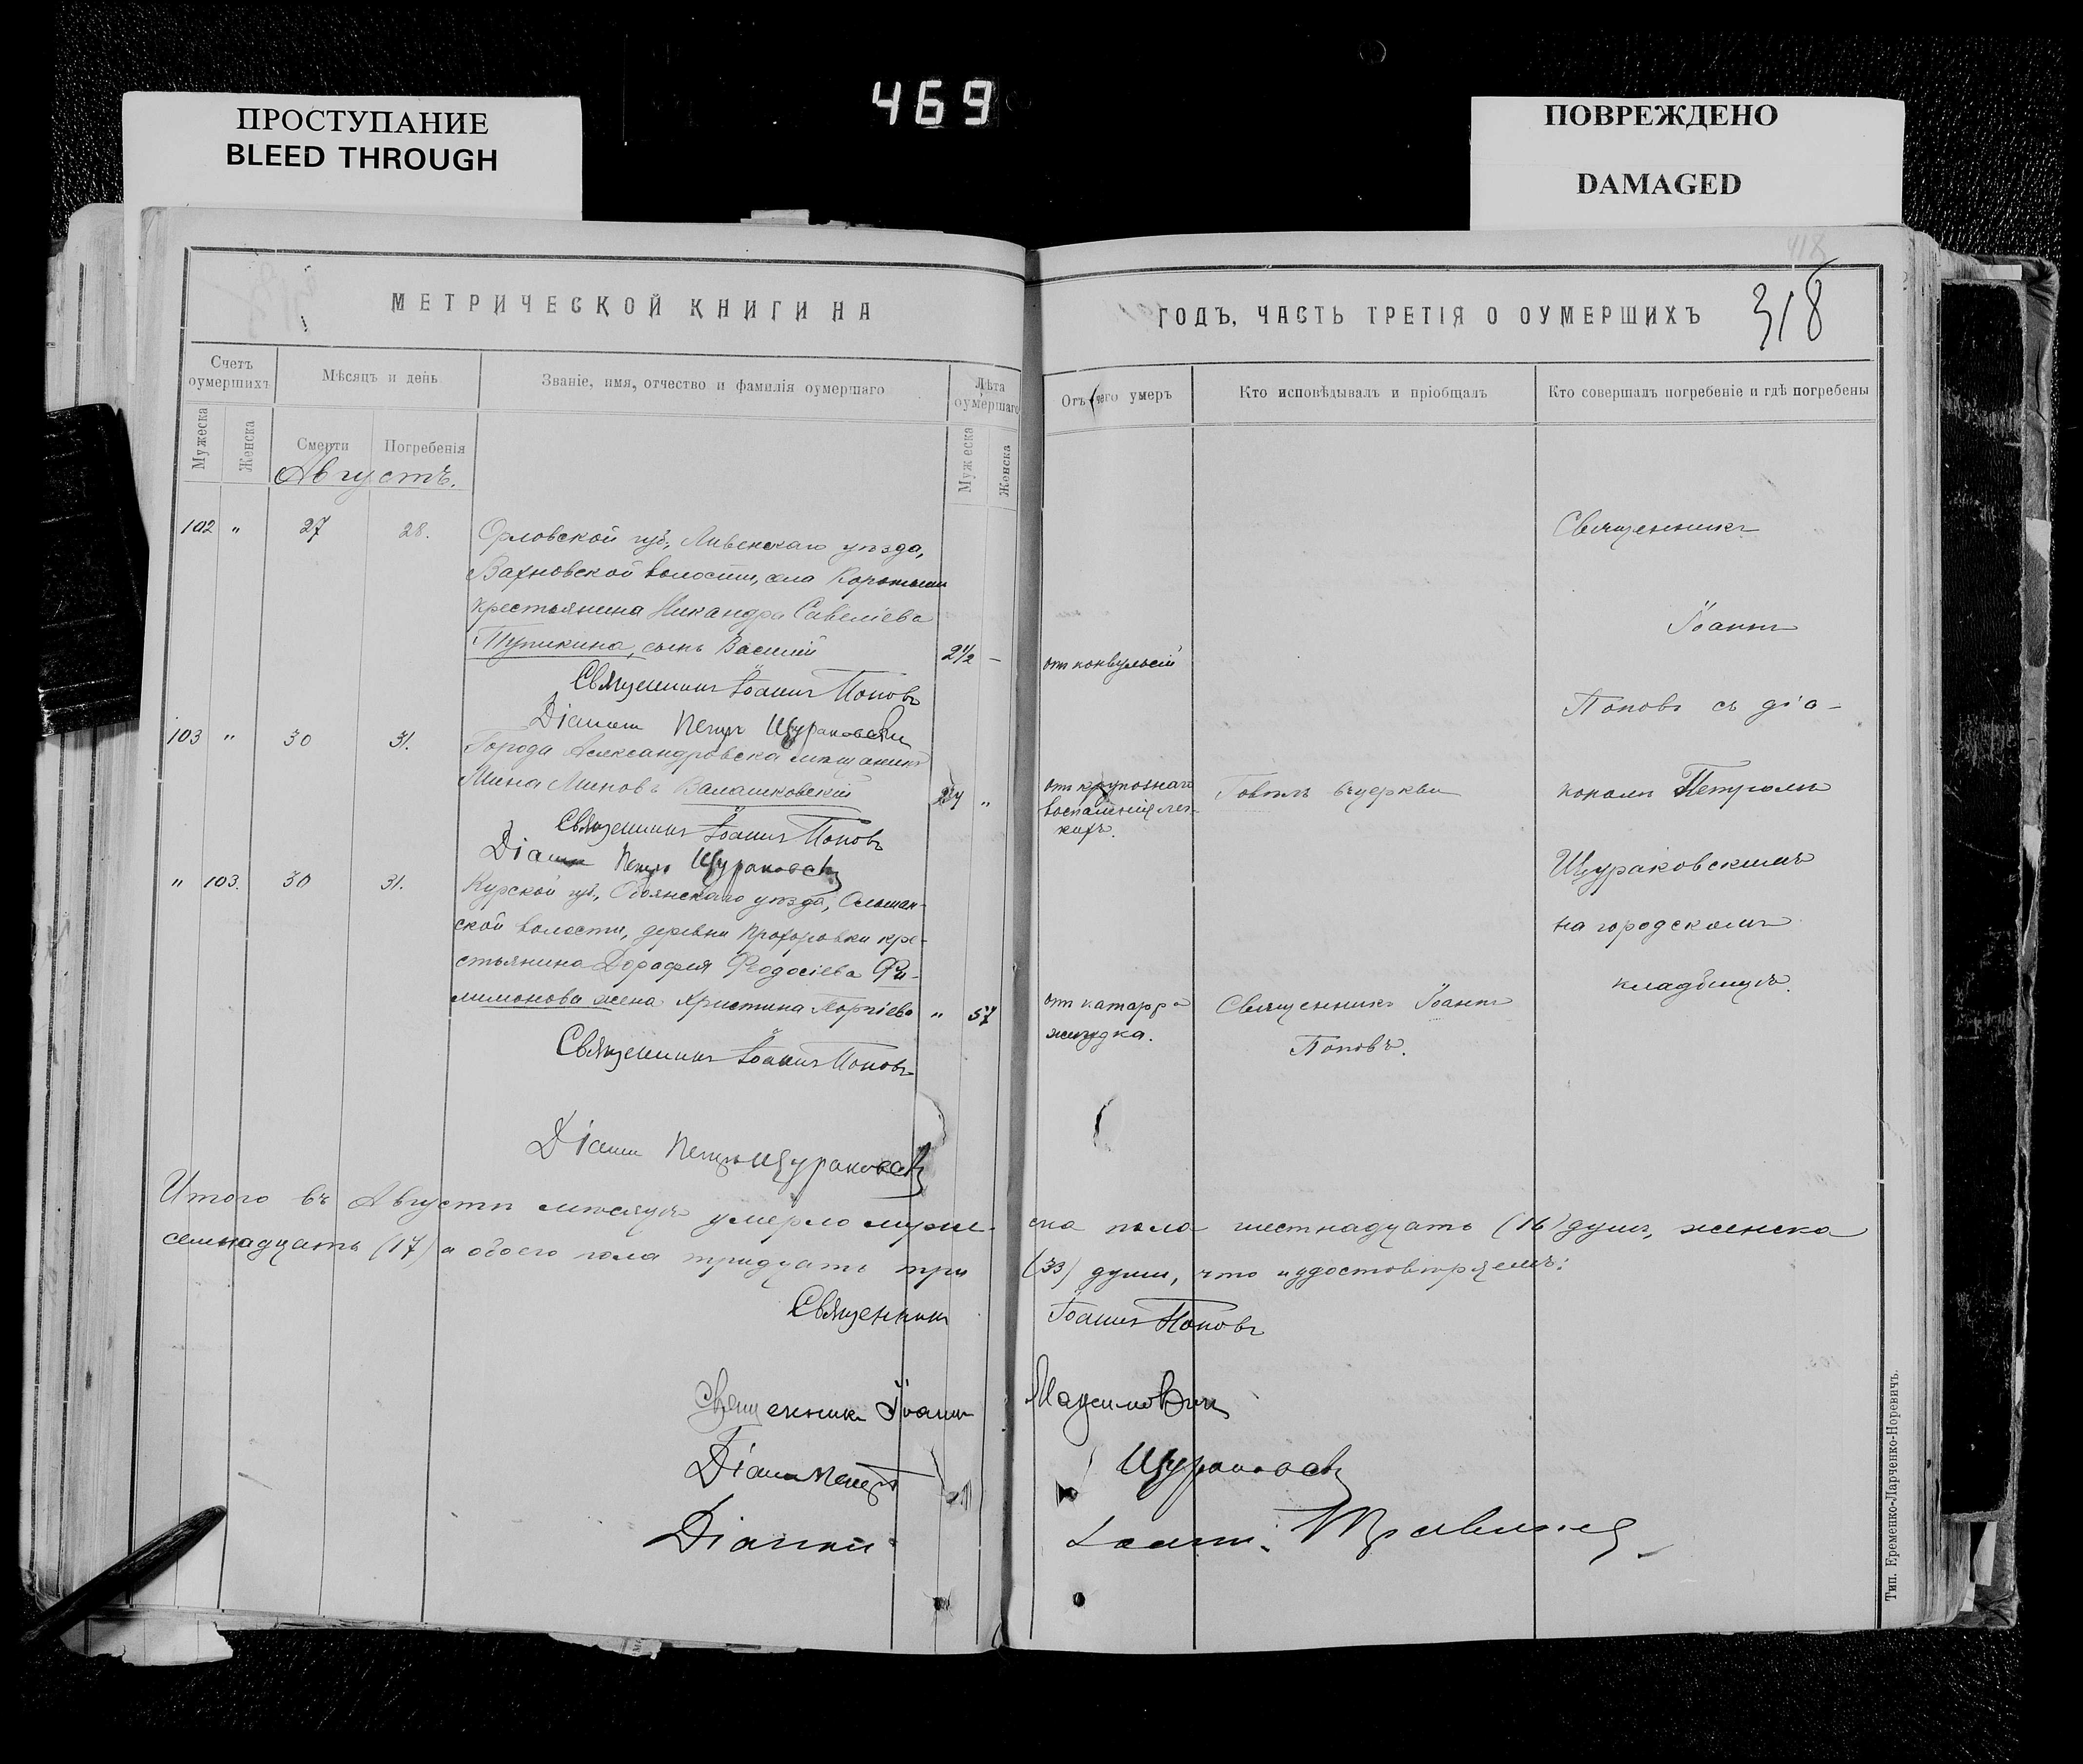 469
ПРОСТУПАНИЕ
BLEED THROUGH
ПОВРЕЖДЕНО
DAMAGED
418
318
МЕТРИЧЕСКОЙ КНИГИ НА
ГОДЪ, ЧАСТЬ ТРЕТІЯ О ОУМЕРШИХЪ
Счетъ оумершихъ
Мѣсяцъ и день
Званіе, имя, отчество и фамилія оумершаго
Лѣта оумершаго
Отъ чего умеръ
Кто исповѣдывалъ и пріобщалъ
Кто совершалъ погребеніе и гдѣ погребены
Мужеска
Женска
Смерти
Погребенія
Мужеска
Женска
Августъ.
102 " 27 28. Орловской губ., Ливенскаго уѣзда,
волости, села
крестьянина Никандра Савеліева
Тупикина, сынъ Василій 2½ — от конвульсій
Священникъ Іоаннъ Поповъ
Діаконъ Петръ Щураковскій
103 " 30 31. Города Александровска мѣщанинъ
Мина Миновъ Валашковскій " от крупознаго
воспаленія лег-
кихъ.
Говѣлъ въ церкви
Священникъ Іоаннъ Поповъ
Діаконъ Петръ Щураковскій
" 103. 30 31. Курской губ., Обоянскаго уѣзда, Ольшан-
ской волости, деревни Прохоровки кре-
стьянина Дорофея Феодосіева Фи-
лимонова жена Христина Георгіева " 57 от катарра
желудка.
Священникъ Іоаннъ
Поповъ.
Священникъ Іоаннъ Поповъ
Діаконъ Петръ Щураковскій
Священникъ
Іоаннъ
Поповъ съ діа-
кономъ Петромъ
Щураковскимъ
на городскомъ
кладбищѣ.
Итого въ Августѣ мѣсяцѣ умерло муже- ска пола шестнадцать (16) душъ, женска
семнадцать (17) а обоего пола тридцать три (33) души, что и удостовѣряемъ:
Священникъ Іоаннъ Поповъ
Священникъ Іоаннъ Максимовичъ
Діаконъ Петръ Щураковскій
Діаконъ Іоаннъ
Тип. Еременко-Ларченко-Норевичъ.